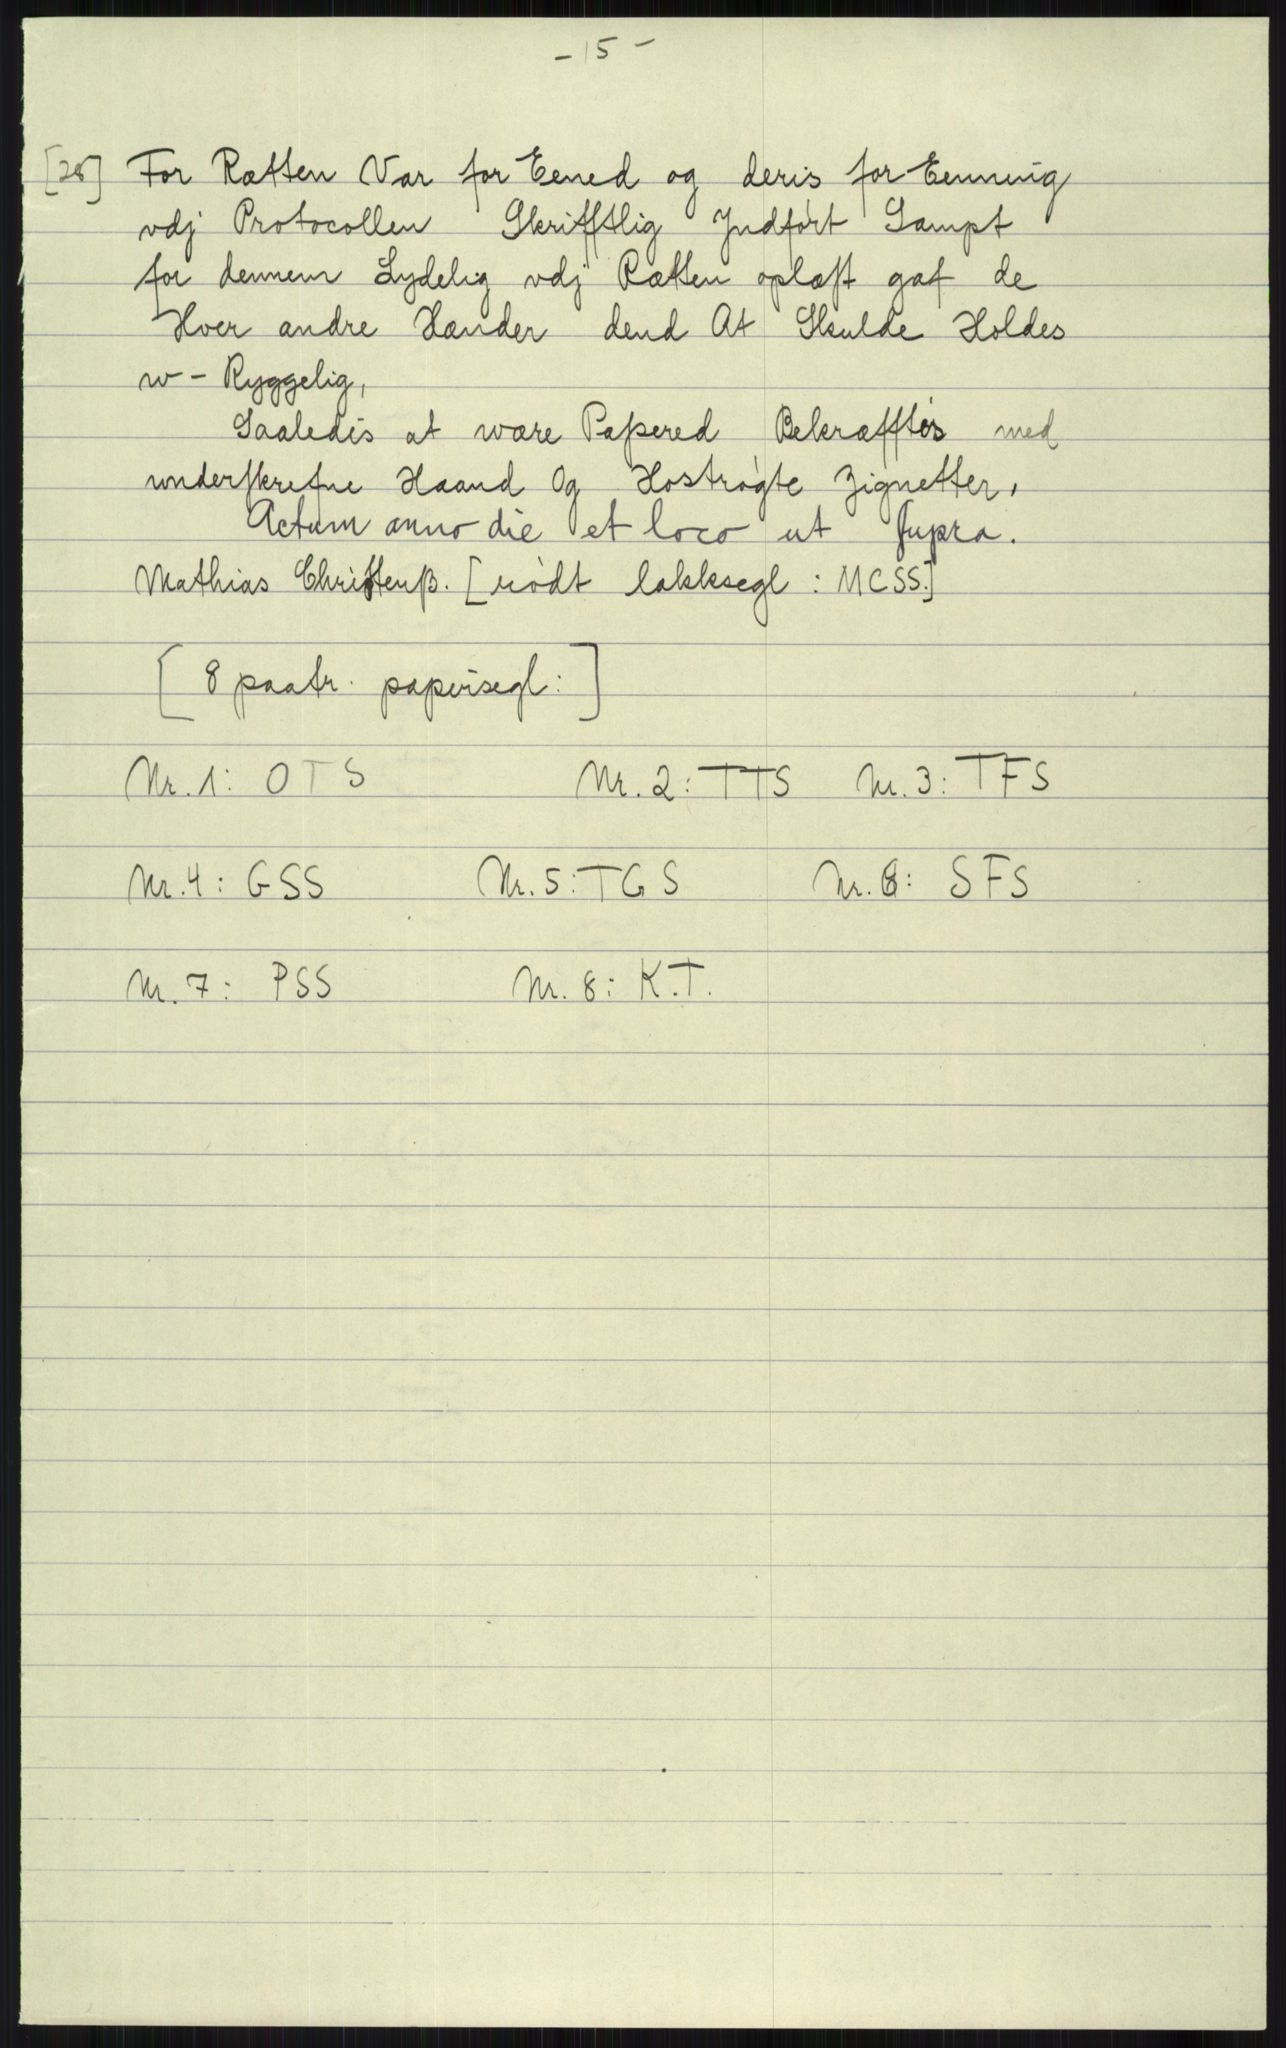 - 15 -
[26] For Rætten Var for Eened og deris for Eenning
vdj Protocollen Skrifftlig Jndført Sampt
for dennem Lydelig vdj Rætten oplæst gaf de
Hver andre Hænder dend At Skulde Holdes
w- Ryggelig,
Saaledis at være Passered Bekræfftes med
underskrefne Haand Og Hostrøgte Zignetter,
Actum anno die et loco ut supra.
Mathias Christenß. [rødt lakksegl: MCSS.]
[8 paatr. papirsegl:]
Nr. 1: OTS Nr. 2: TTS Nr. 3: TFS
Nr. 4: GSS Nr. 5: TGS Nr. 6: SFS
Nr. 7: PSS Nr. 8: K.T.